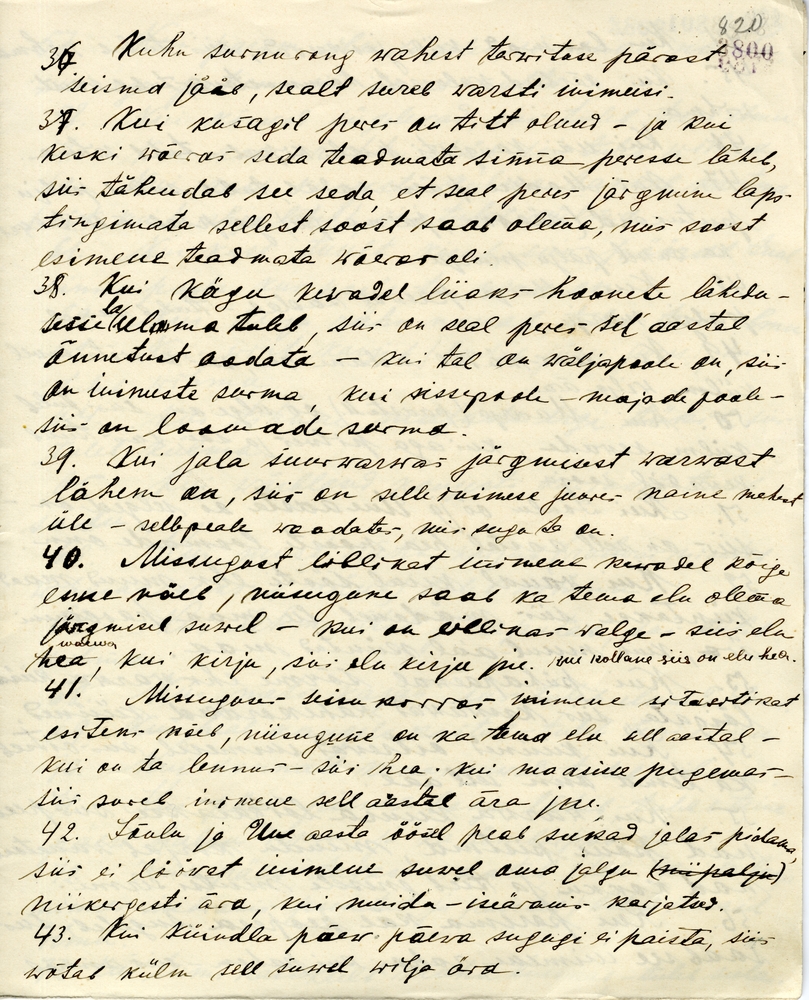 820
3800
36 Kuhu surnurong wahest terwituse pärast
seisma jääb, sealt sureb warsti inimesi.
37. Kui kusagil peres on titt olnud – ja kui
keski wõeras seda teadmata sinna peresse läheb,
siis tähendab see seda, et seal peres järgmine laps
tingimata sellest soost saab olema, mis soost
esimene teadmata wõeras oli.
38. Kui kägu kewadel liiaks hoonete lähedu-
sesse laulma tuleb, siis on seal peres sel aastal
õnnetust oodata – kui tal on wäljapoole on, siis
on inimeste surma, kui sissepoole – majade poole –
siis on loomade surma.
39. Kui jala suurwarwas järgmisest warwast
lähem on, siis on selle inimese juures naine mehest
üle – sellepeale waadates, mis sugu ta on.
40. Missugust liblikat inimene kewadel kõige
enne näeb, niisugune saab ka tema elu olema
järgmisel suwel – kui on liblikas walge – siis elu
hea, kui kirju, siis elu kirju jne. kui kollane siis on elu hea.
41. Missuguses seisukorras inimene sitasitikat
esiteks näeb, niisugune on ka tema elu sell aastal –
kui on ta lennus – siis hea; kui maasise pugemas –
siis sureb inimene sell aastal ära jne.
42. Jõulu ja Uue aasta öösel peab sukad jalas pidama,
siis ei löövat inimene suwel oma jalgu (niipalju)
niikergesti ära, kui muidu – iseäranis karjatsed.
43. Kui Küindla päew päewa sugugi ei paista, siis
wõtab külm sell suwel wilja ära.